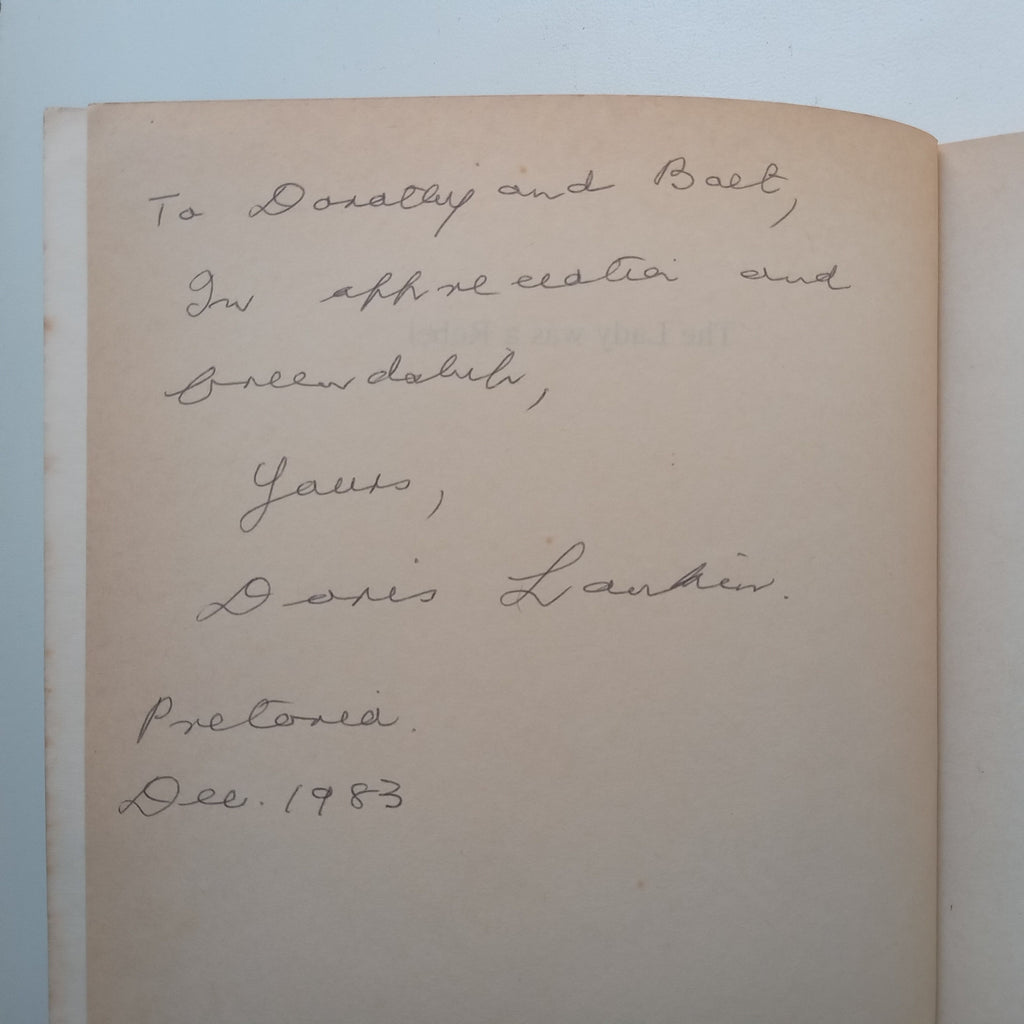 To Dorothy and Balt,
In appreciation and
The Lady was a Rebel
friendship,
Yours,
Doris Larkin.
Pretoria.
Dec. 1983